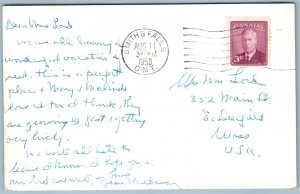 Dear Mrs Lord
We are all having a
wonderful vacation &
rest. This is a perfect
place & Mary & Melinda
love it too I think. They
are growing so fast & getting
very lively.
We will all hate to
leave I know. I hope you &
are well. Love
Jean
SMITHS FALLS
AUG 11
PM
1950
ONT.
CANADA
3
Mrs Wm Lord
352 Main St
S. Deerfield
Mass
U.S.A.